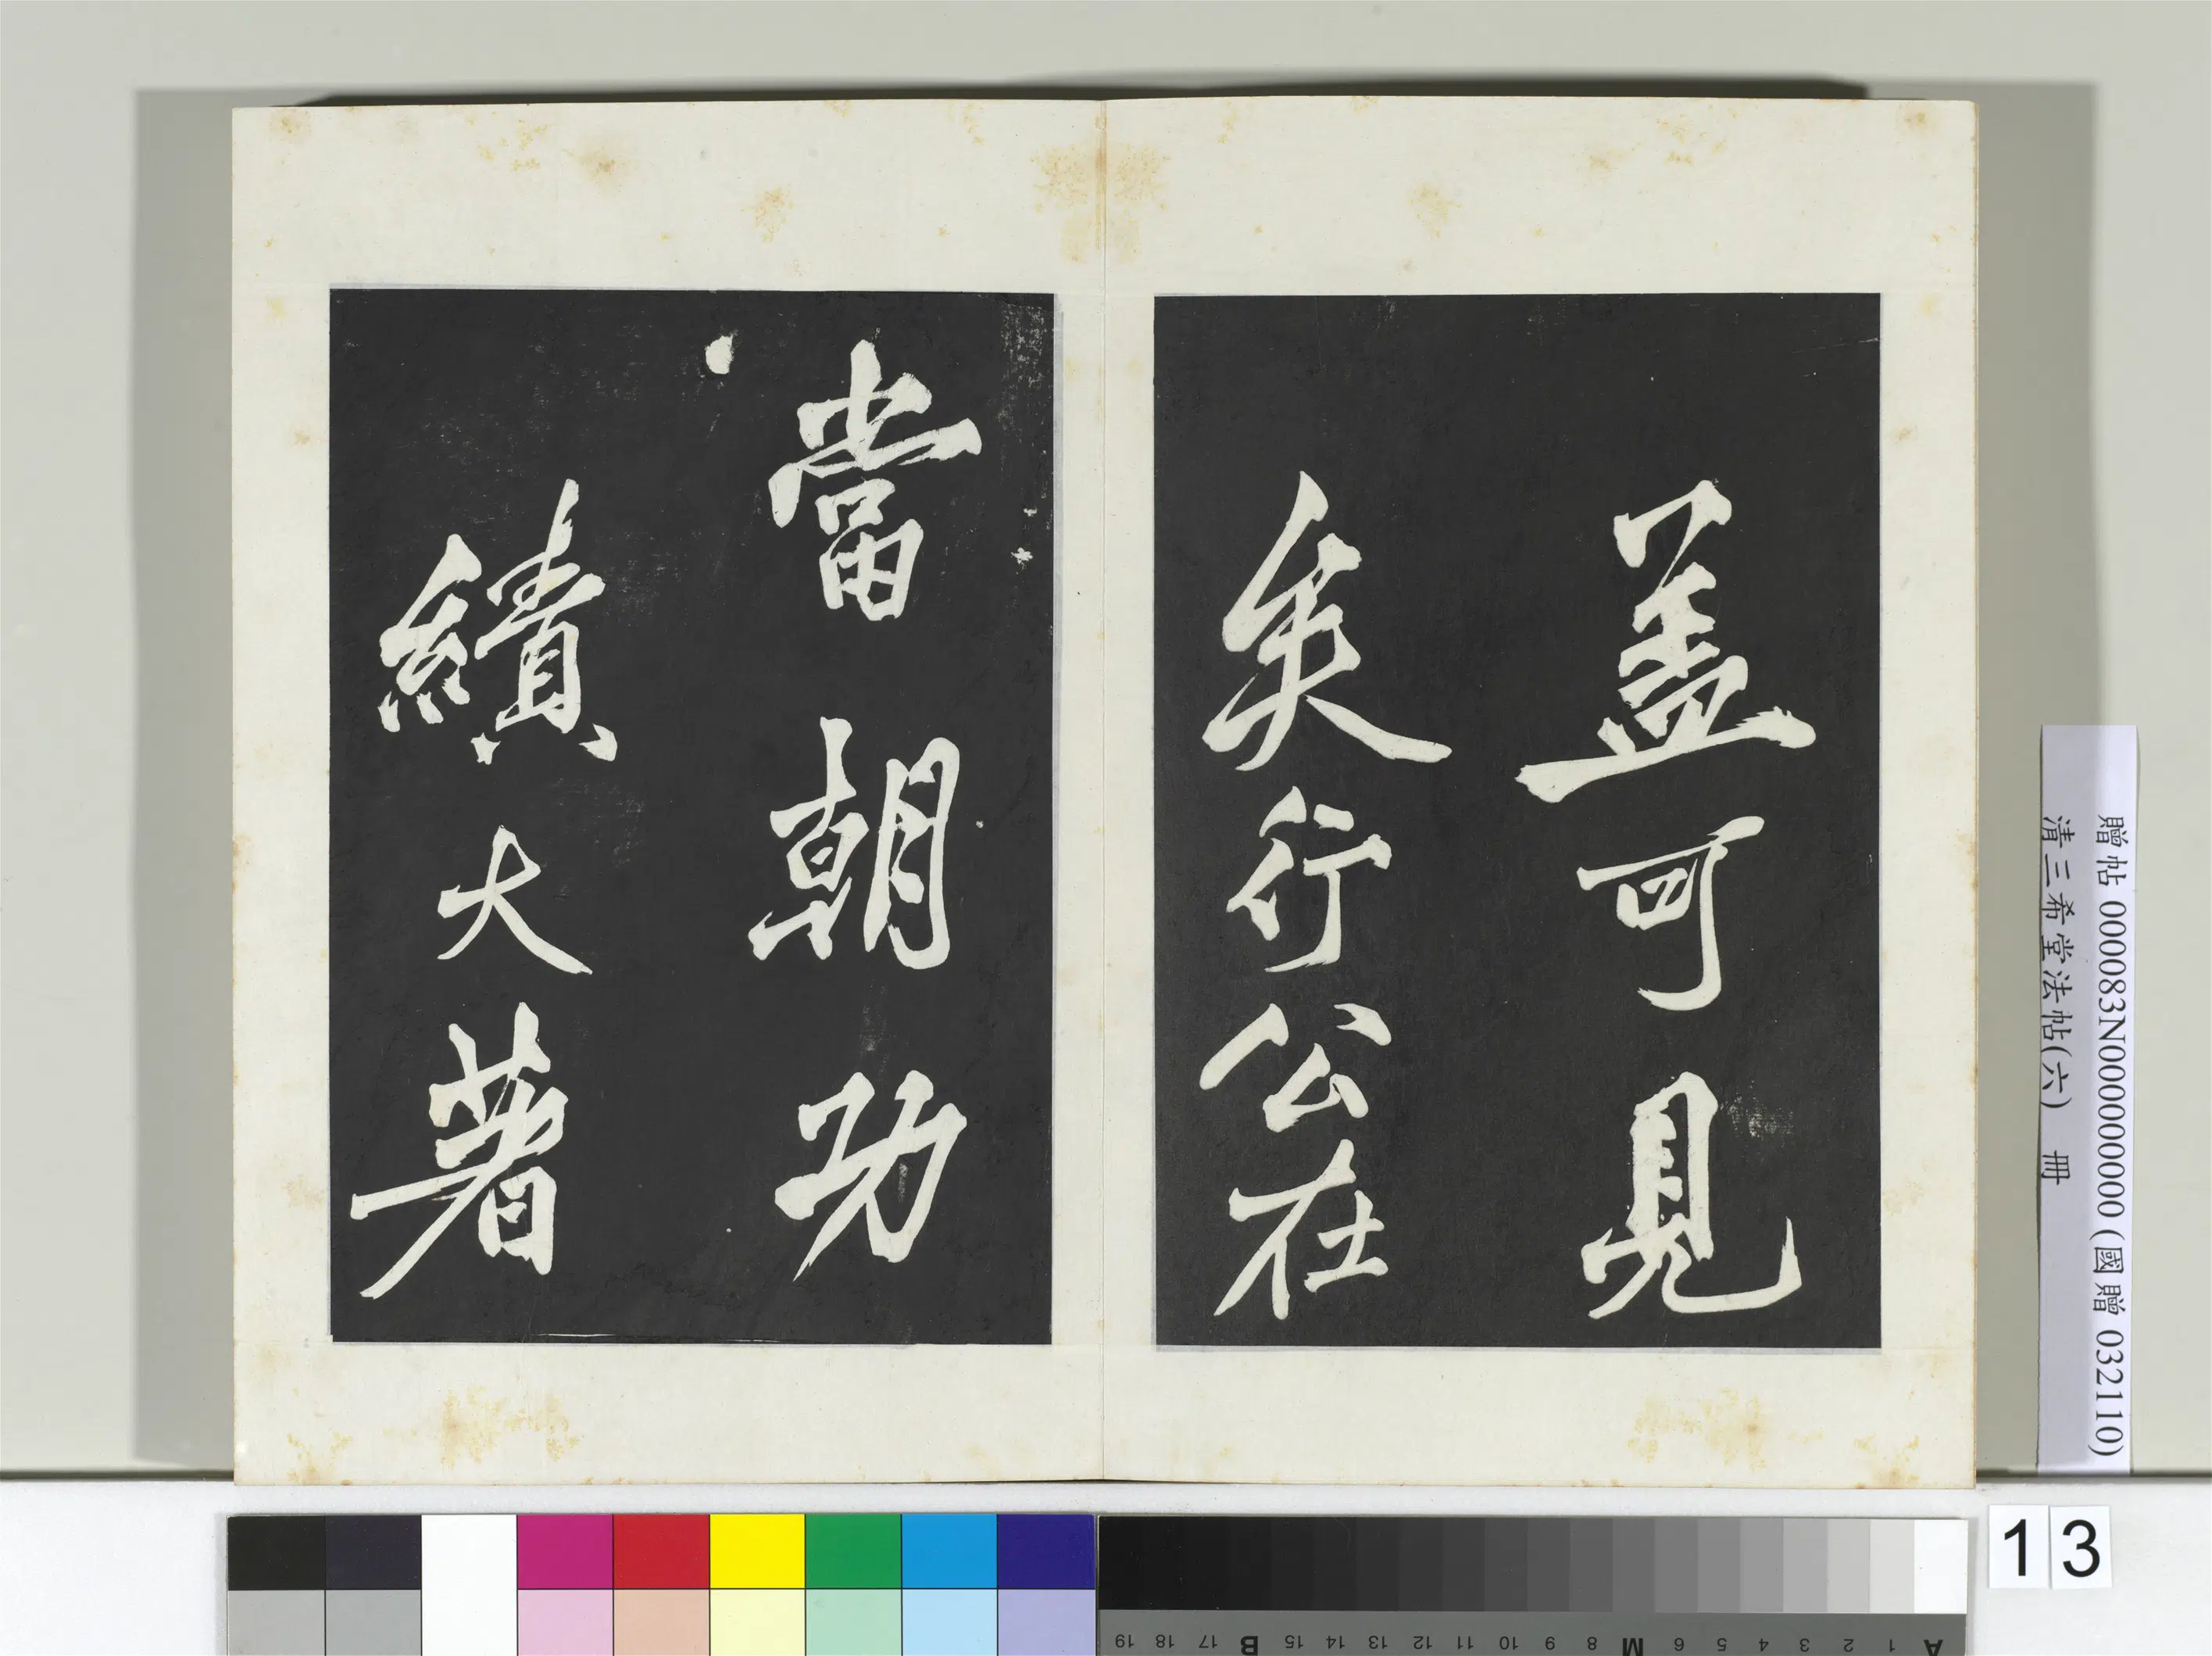 盖可見
矣行公在
當朝功
績大著
贈帖 000083N000000000 (國贈 032110)
清三希堂法帖(六) 冊
13
A 1 2 3 4 5 6 M 8 9 10 11 12 13 14 15 B 17 18 19